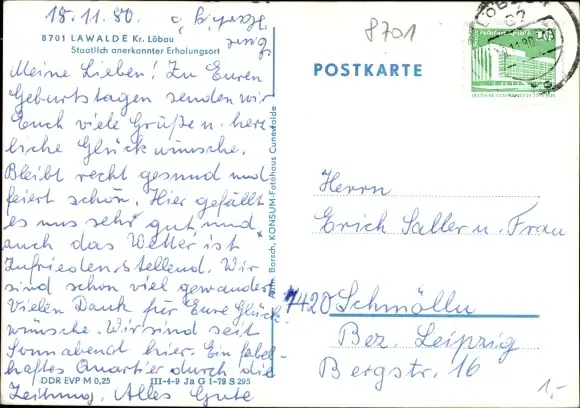 18.11.80.
8701 LAWALDE Kr. Löbau
Staatlich anerkannter Erholungsort
Meine Lieben! Zu Euren
Geburtstagen senden wir
Euch viele Grüße u. herz
liche Glückwünsche.
Bleibt recht gesund und
feiert schön. Hier gefällt
es uns sehr gut, und
auch das Wetter ist
zufriedenstellend. Wir
sind schon viel gewandert
Vielen Dank für Eure Glück-
wünsche. Wir sind seit
Sonnabend hier. Ein fabel-
haftes Quartier durch die
Zeitung. Alles Gute
DDR EVP M 0,25 III-4-9 Ja G 1-79 S 295
Borsch, KONSUM-Fotohaus Cunewalde
8701
POSTKARTE
LÖBAU
Herrn
Erich Saller u. Frau
7420 Schmölln
Bez. Leipzig
Bergstr. 16
1,-